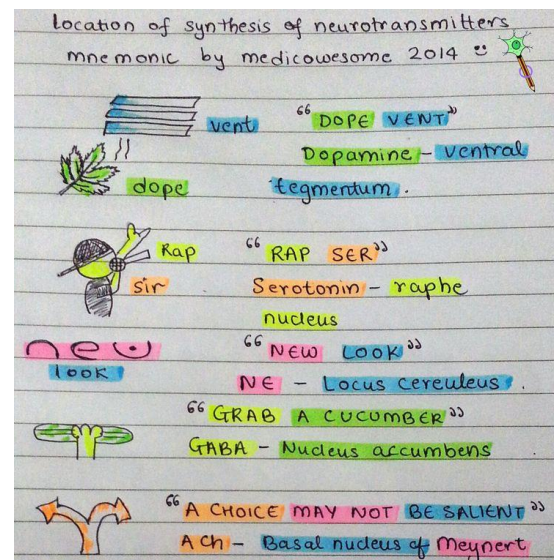 location of synthesis of neurotransmitters
mnemonic by medicowesome 2014
vent
"DOPE VENT"
Dopamine - ventral
dope
tegmentum.
Rap
"RAP SER"
sir
Serotonin - raphe
nucleus
new
"NEW LOOK"
look
NE - Locus cereuleus.
"GRAB A CUCUMBER"
GABA - Nucleus accumbens
"A CHOICE MAY NOT BE SALIENT"
ACh - Basal nucleus of Meynert